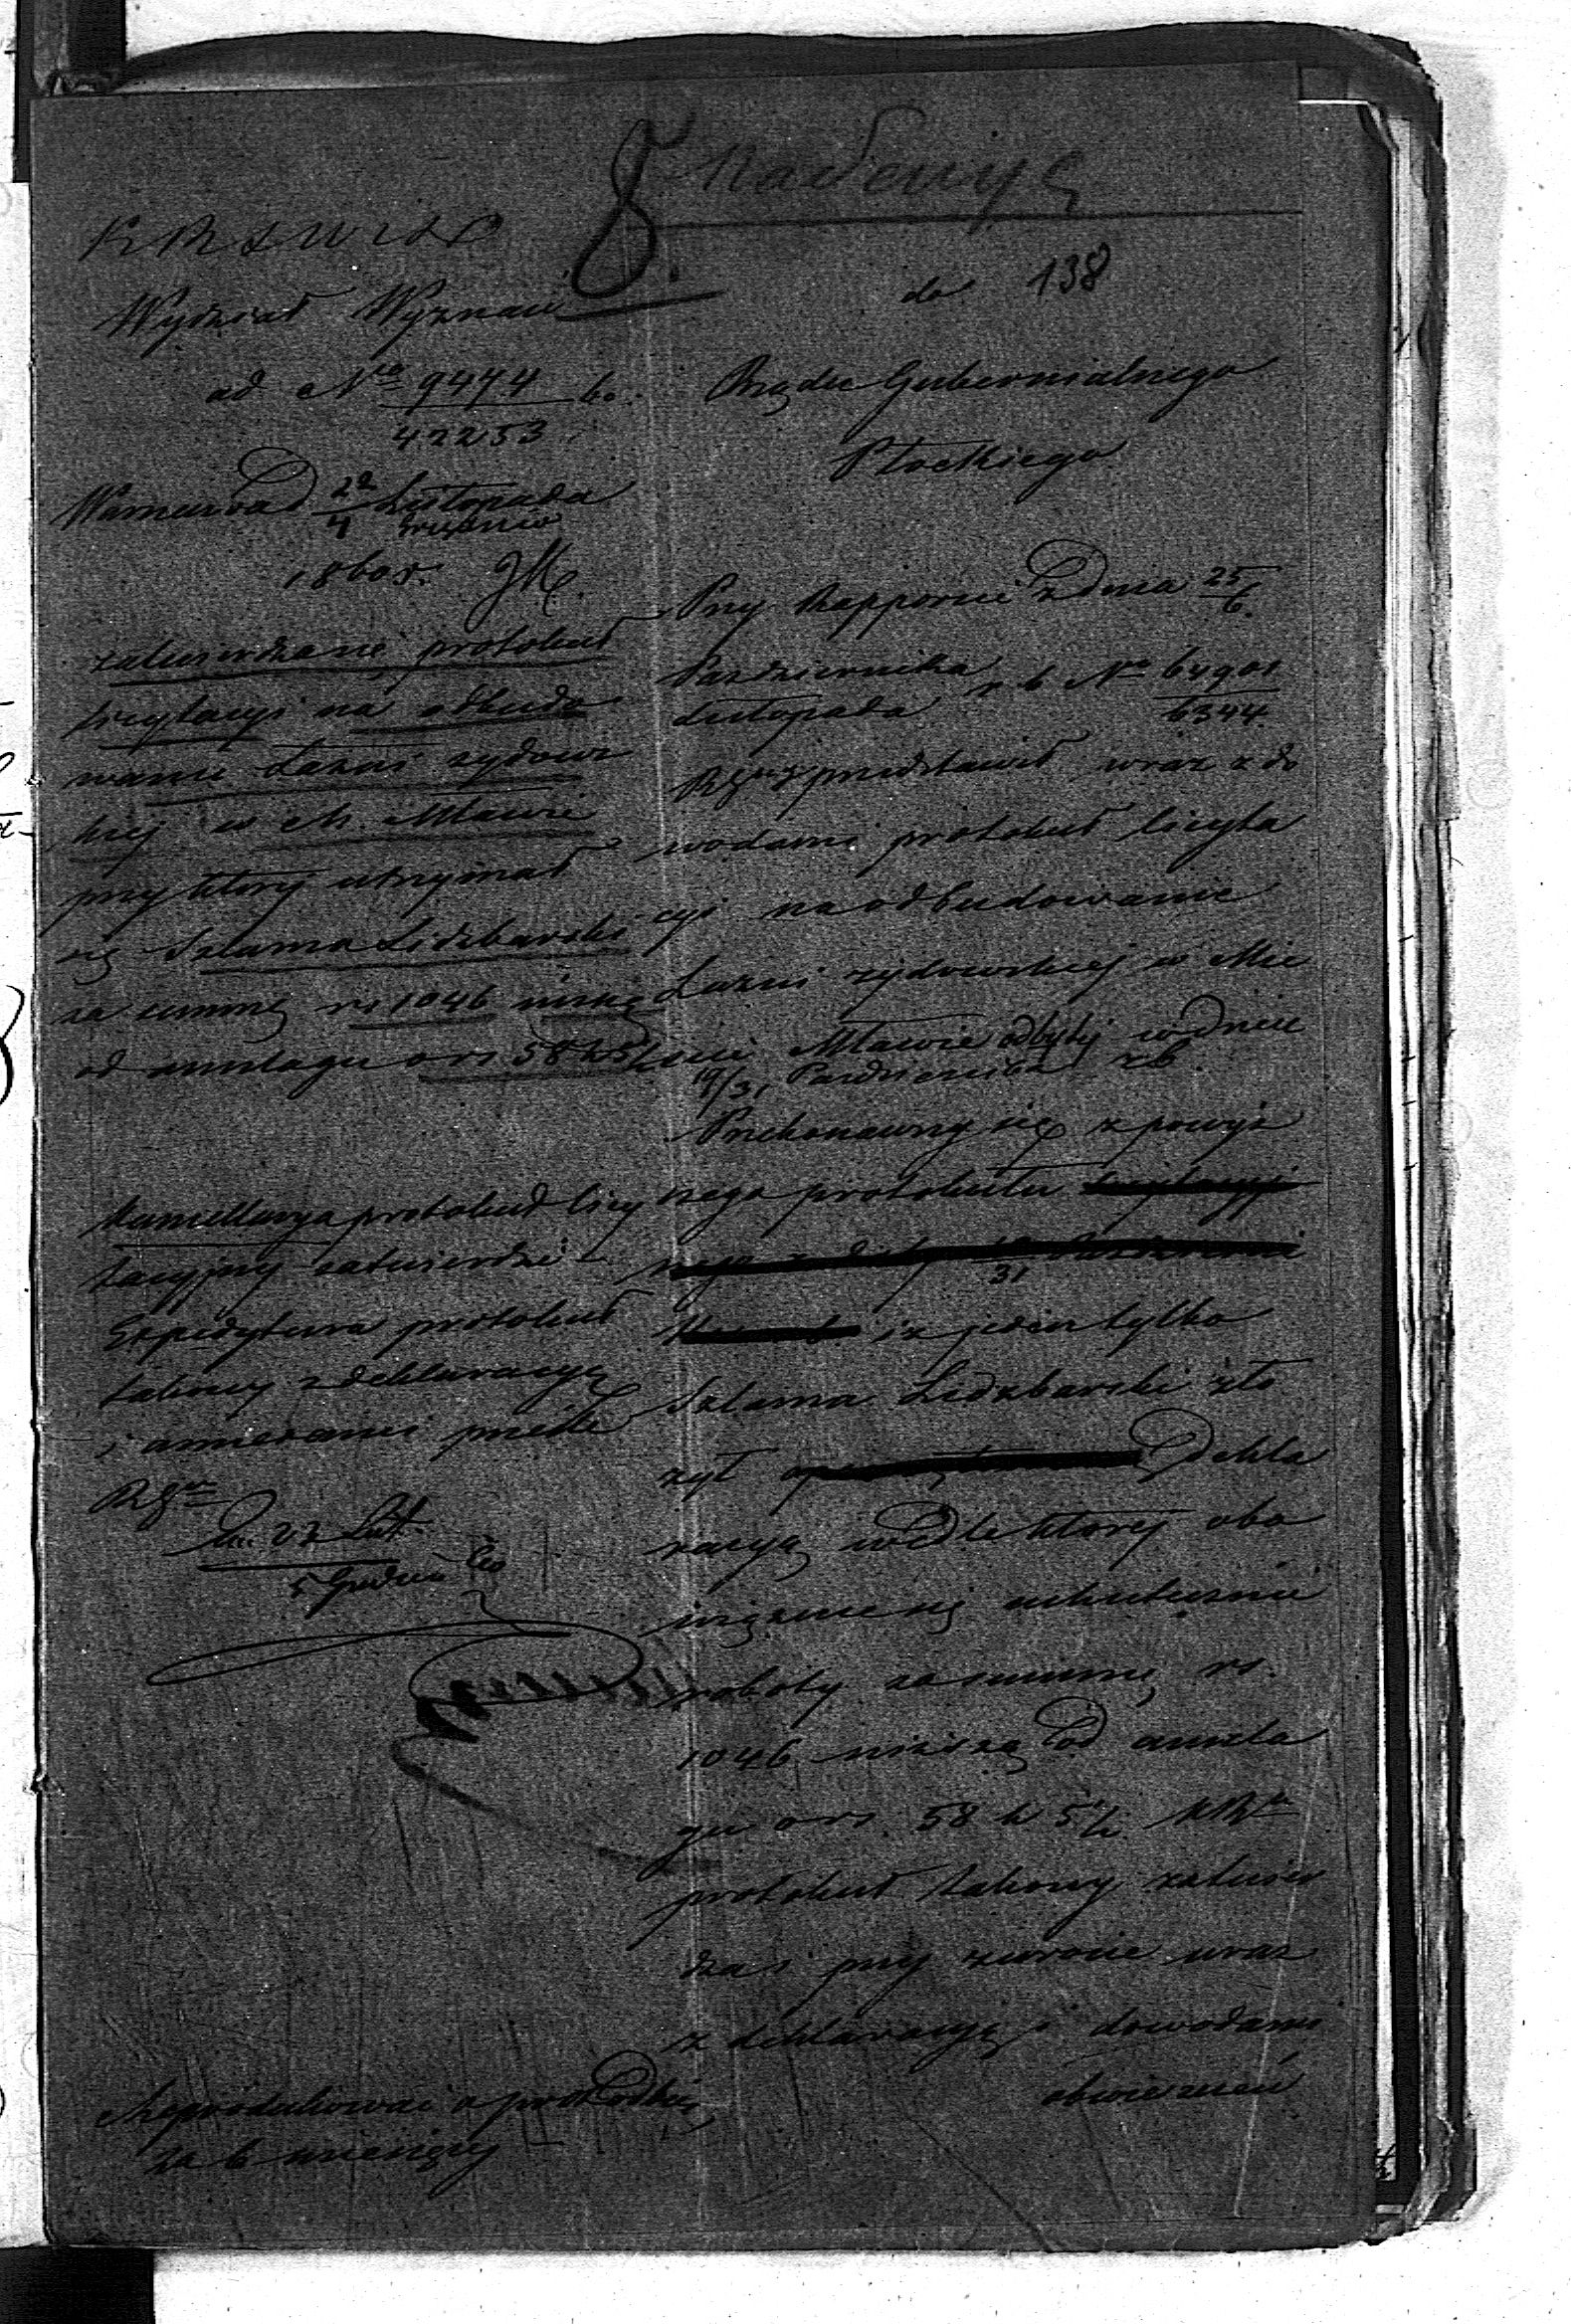 8.
KRSWiD
Wydział Wyznań
ad Nro 9474 60.
42253
Warszawa d 22 Listopada
4 Grudnia
1860 r.
zatwierdzenie protokuł
licytacyi na odbudo
wanie Łazni zydows
kiej w M. Mławie
przy ktorej utrzymał
się Szlama Lidzbarski
za summę rs 1046 niższą
od anszlagu o rs. 58 k 5½
Kancellarya protokuł licy
tacyjny zatwierdzi
Expedytura protokuł
takowy z deklaracyą
i annexami prześle
RGu
5 Grudnia 60
Reprodukować
za 6 miesięcy
138
do
Rządu Gubernialnego
Płockiego
Przy Rapporcie z dnia 25/6
Pazdziernika
Listopada r. b. No 64901
6344
RGu przedstawił wraz z do
wodami protokuł licyta
cyi na odbudowanie
Łazni zydowskiej w Mie
scie Mławie odbytej w dniu
19/31 Pazdziernika r b.
Przekonawszy się z powyż
szego protokułu
31
iż jeden tylko
Szlama Lidzbarski zło
żył dekla
racyą wedle ktorej obo
wiązuje się uskutecznić
roboty za summę rs.
1046 niższą od anszla
gu o rs. 58 k 5½ KRu
protokuł takowy zatwier
dza i przy zwrocie wraz
z deklaracyą i dowodami
obwieszczeń